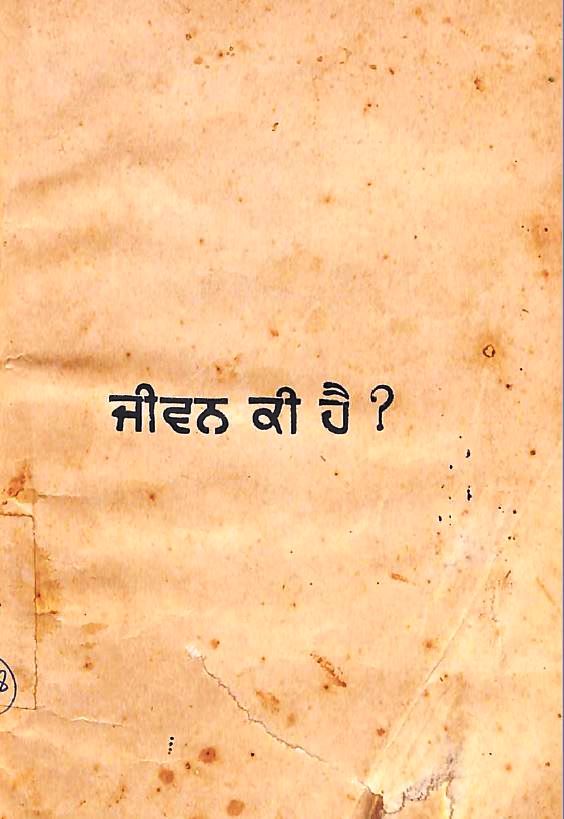 ਜੀਵਨ ਕੀ ਹੈ ?
8